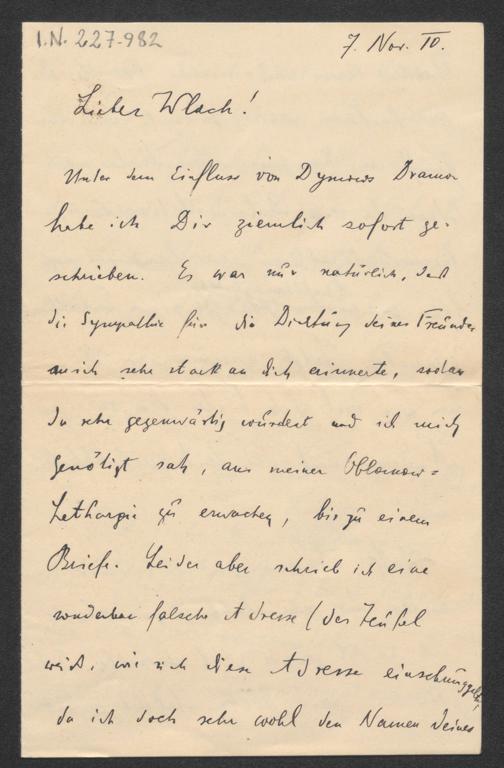 I.N. 227.982
7. Nov. 10.
Lieber Wlach!
Unter dem Einfluss von Dymows Drama
habe ich Dir ziemlich sofort ge-
schrieben. Es war nur natürlich, daß
die Sympathie für die Dichtung deines Freundes
mich sehr stark an dich erinnerte, sodaß
du sehr gegenwärtig wurdest und ich mich
genötigt sah, aus meiner Oblomow=
Lethargie zu erwachen, bis zu einem
Briefe. Leider aber schrieb ich eine
sonderbar falsche Adresse (der Teufel
weiß, wie sich diese Adresse einschmuggelte,
da ich doch sehr wohl den Namen deines